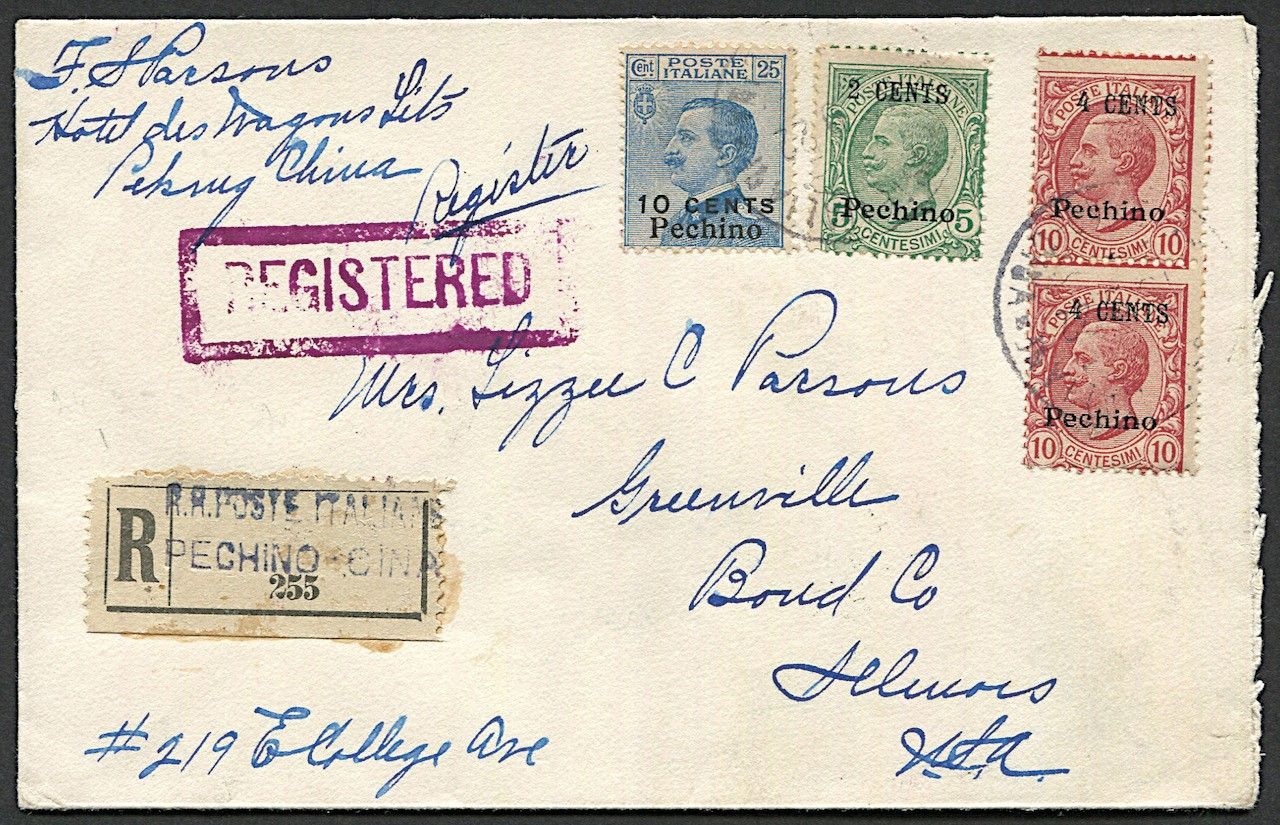 F. S. Parsons
Hotel des Wagons Lits
Peking China
Register
REGISTERED
Cent POSTE ITALIANE 25
10 CENTS
Pechino
POSTE ITALIANE
2 CENTS
Pechino
5 CENTESIMI 5
POSTE ITALIANE
4 CENTS
Pechino
10 CENTESIMI 10
POSTE ITALIANE
4 CENTS
Pechino
10 CENTESIMI 10
Mrs. Lizzee C Parsons
Greenville
Bond Co
Illinois
U.S.A.
R
R.R. POSTE ITALIANE
PECHINO CINA
255
# 219 E College Ave